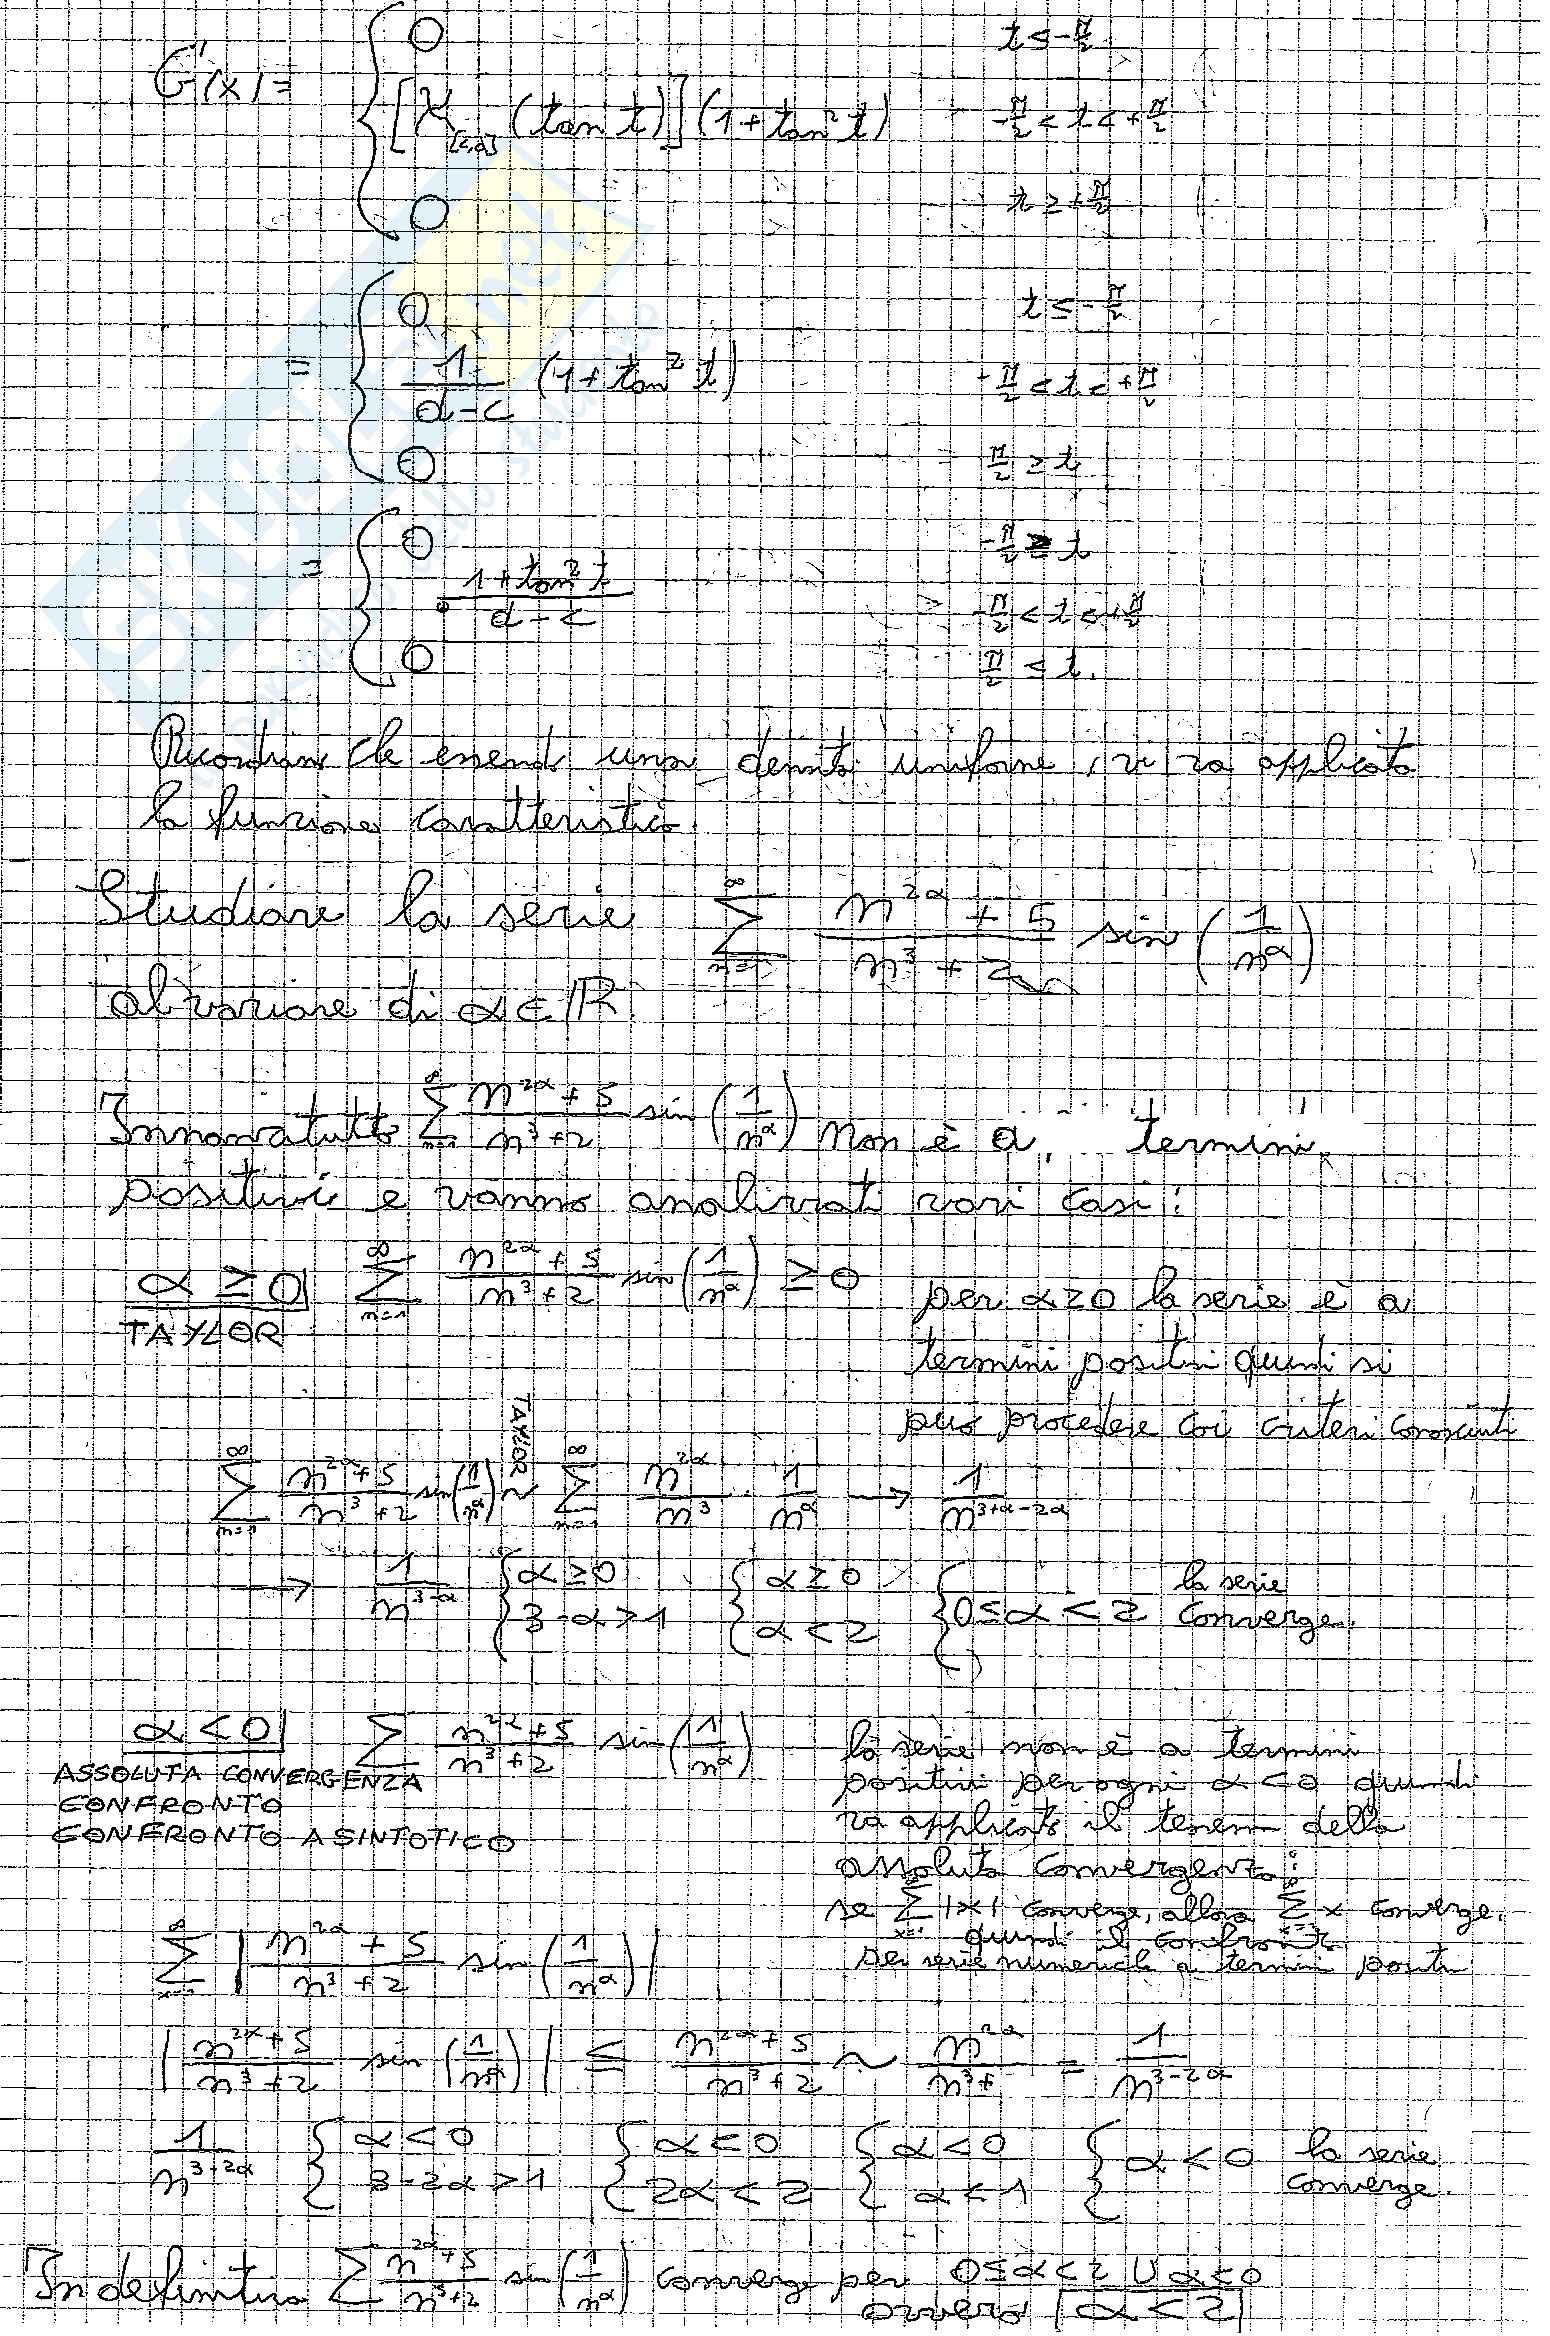 G'(x) = { 0    t ≤ -π/2
[χ[c,d] (tan t)] (1+tan² t)    -π/2 < t < +π/2
0    t ≥ +π/2
= { 0    t ≤ -π/2
1/(d-c) (1+tan² t)    -π/2 < t < +π/2
0    π/2 ≥ t
= { 0    -π/2 ≥ t
(1+tan² t)/(d-c)    -π/2 < t ≤ +π/2
0    π/2 < t.
una densità uniforme, vi va applicata
la funzione caratteristica.
Studiare la serie ∑ n=1 ∞ (n^2α + 5)/(n³ + 2) sin (1/n^α)
al variare di α ∈ ℝ
Innanzitutto ∑ n=1 ∞ (n^2α + 5)/(n³+2) sin (1/n^α) non è a termini
positivi e vanno analizzati vari casi:
α ≥ 0    ∑ n=1 ∞ (n^2α + 5)/(n³+2) sin (1/n^α) ≥ 0    per α≥0 la serie è a
TAYLOR    termini positivi quindi si
può procedere coi criteri conosciuti
∑ n=1 ∞ (n^2α+5)/(n³+2) sin(1/n^α) TAYLOR ~ ∑ n=1 ∞ n^2α/n³ · 1/n^α → 1/n^(3+α-2α)
→ 1/n^(3-α) { α ≥ 0 3-α > 1 { α ≥ 0 α < 2 { 0 ≤ α < 2 la serie converge.
α < 0    ∑ (n^2α+5)/(n³+2) sin (1/n^α)    la serie non è a termini
ASSOLUTA CONVERGENZA    positivi per ogni α<0 quindi
CONFRONTO    va applicato il teorema della
CONFRONTO ASINTOTICO    assoluta convergenza:
se ∑ |x| converge, allora ∑ x converge.
quindi il confronto
per serie numeriche a termini positivi
∑ n=1 ∞ |(n^2α + 5)/(n³+2) sin (1/n^α)|
|(n^2α+5)/(n³+2) sin (1/n^α)| ≤ (n^2α+5)/(n³+2) ~ n^2α/n³ = 1/n^(3-2α)
1/n^(3-2α) { α < 0 3-2α > 1 { α < 0 2α < 2 { α < 0 α < 1 { α < 0 la serie converge.
In definitiva ∑ (n^2α+5)/(n³+2) sin (1/n^α) converge per 0≤α<2 ∪ α<0
ovvero α < 2